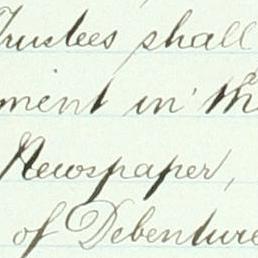 Trustees shall
ment in the
Newspaper,
of Debenture